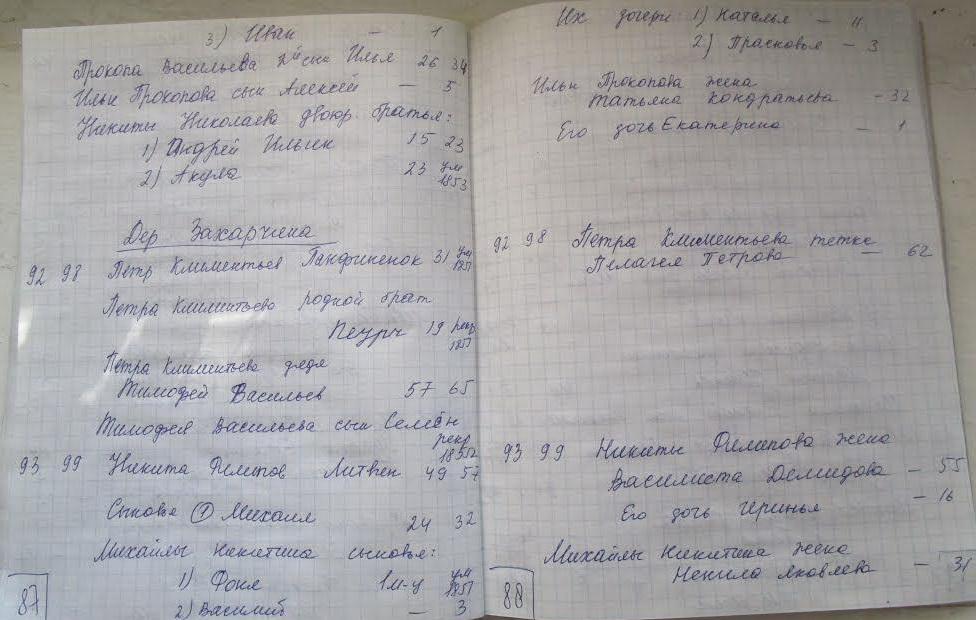 3) Иван — 1
Прокопа Васильева 2й сын Илья 26 34
Ильи Прокопова сын Алексей — 5
Никиты Николаева двоюр. братья:
1) Андрей Ильин 15 23
2) Акула 23 ум 1853
Дер Захарчина
92 98 Петр Климентьев Панфиненок 31 ум 1851
Петра Климентьева родной брат
19 рекр 1851
Петра Климентьева дядя
Тимофей Васильев 57 65
Тимофея Васильева сын Семён
рекр 1852
93 99 Никита Филипов Литвин 49 57
Сыновья 1) Михаил 24 32
Михайлы Никитина сыновья:
1) Фока 1м-ц ум 1851
2) Василий — 3
87
Их дочери 1) Наталья — 11
2) Прасковья — 3
Ильи Прокопова жена
Татьяна Кондратьева — 32
Его дочь Екатерина — 1
92 98 Петра Климентьева тетка
Пелагея Петрова — 62
93 99 Никиты Филипова жена
Василиста Демидова — 55
Его дочь Иринья — 16
Михайлы Никитина жена
Ненила Яковлева — 31
88